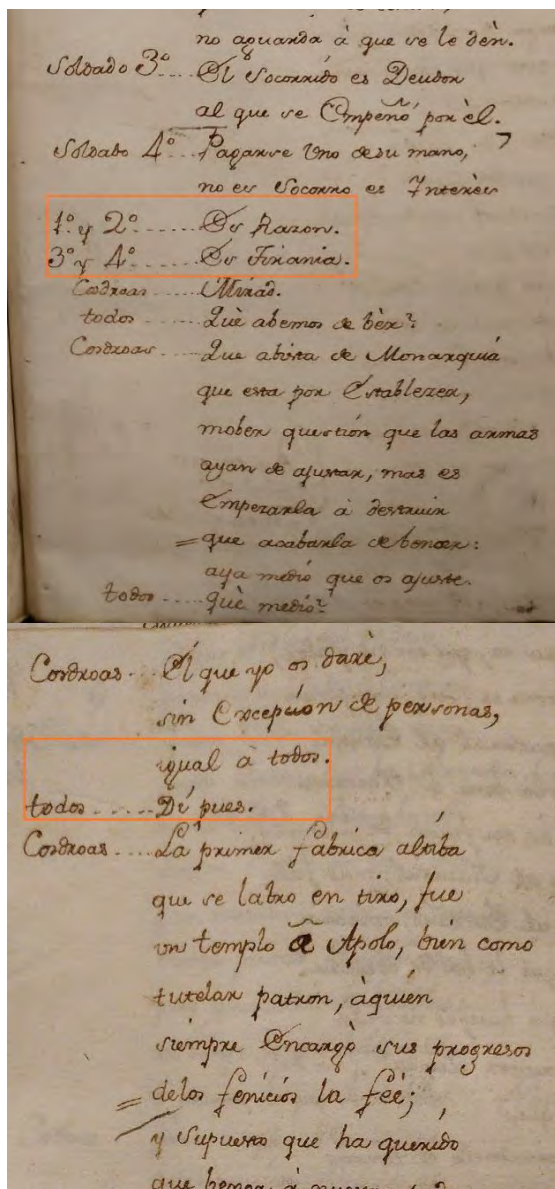 no aguarda à que se le dèn.
Soldado 3º.... El Socorrido es Deudor
al que se Empeñó por èl.
Soldado 4º... Pagarse Uno de su mano,
no es Socorro es Interès
1º. y 2º....... Es Razon.
3º y 4º....... Es Tirania.
Cosdroas..... Mirad.
todos ..... Què abemos de bèr?
Cosdroas.... Que abista de Monarquiá
que esta por Establezer,
mober question que las armas
ayan de ajustar, mas es
Empezarla à destruir
= que acabarla de benzer:
aya medió que os ajuste.
todos ..... què medió?
Cosdroas... El que yo os darè,
sin Excepción de personas,
igual à todos.
todos ...... Dí pues.
Cosdroas.... La primer fabrica altiba
que se labro en tiro, fue
un templo a Apolo, bien como
tutelar patron, àquién
siempre Encargò sus progresos
= delos fenicios la feè;
y Supuesto que ha querido
que benga à